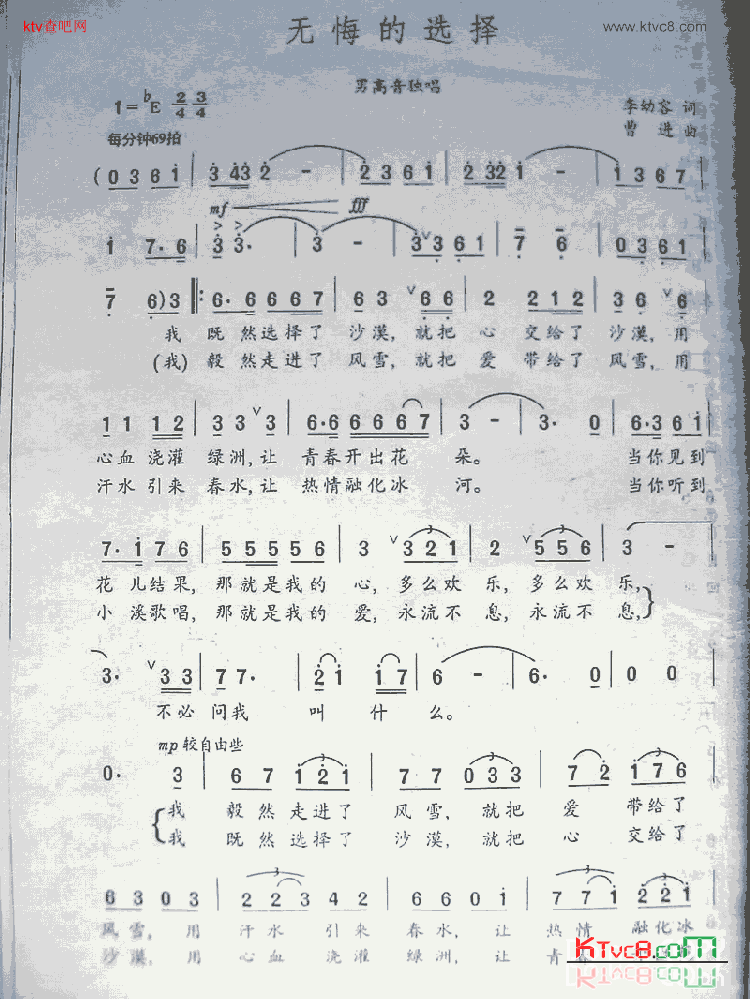 ktv查吧网
www.ktvc8.com
无悔的选择
男高音独唱
1=♭E 2/4 3/4
每分钟69拍
李幼容 词
曹进 曲
(0 3 6 1 | 3 43 2 - | 2 3 6 1 | 2 32 1 - | 1 3 6 7
mf fff
1 7·6 | 3 3· | 3 - | 3 3 6 1 | 7 6 | 0 3 6 1
7 6)3 |: 6· 6 6 6 7 | 6 3 ∨6 6 | 2 2 1 2 | 3 6 ∨6
我 既然选择了 沙漠,就把 心 交给了 沙漠,用
(我) 毅然走进了 风雪,就把 爱 带给了 风雪,用
1 1 1 2 | 3 3 ∨3 | 6·6 6 6 6 7 | 3 - | 3· 0 | 6·3 6 1
心血浇灌 绿洲,让 青春开出花 朵。 当你见到
汗水引来 春水,让 热情融化冰 河。 当你听到
7· 1 7 6 | 5 5 5 5 6 | 3 ∨3 2 1 | 2 ∨5 5 6 | 3 -
花儿结果,那就是我的 心,多么欢 乐,多么欢 乐,
小溪歌唱,那就是我的 爱,永流不 息,永流不 息,
3· ∨3 3 | 7 7· | 2 1 1 7 | 6 - | 6· 0 | 0 0
不必 问我 叫 什 么。
mp 较自由些
0· 3 | 6 7 1 2 1 | 7 7 0 3 3 | 7 2 1 7 6
我 毅然走进了 风雪,就把 爱 带给了
我 既然选择了 沙漠,就把 心 交给了
6 3 0 3 | 2 2 3 4 2 | 6 6 0 1 | 7 7 1 2 2 1
风雪,用 汗水 引来 春水,让 热情 融化冰
沙漠,用 心血 浇灌 绿洲,让 青
KTvc8.com